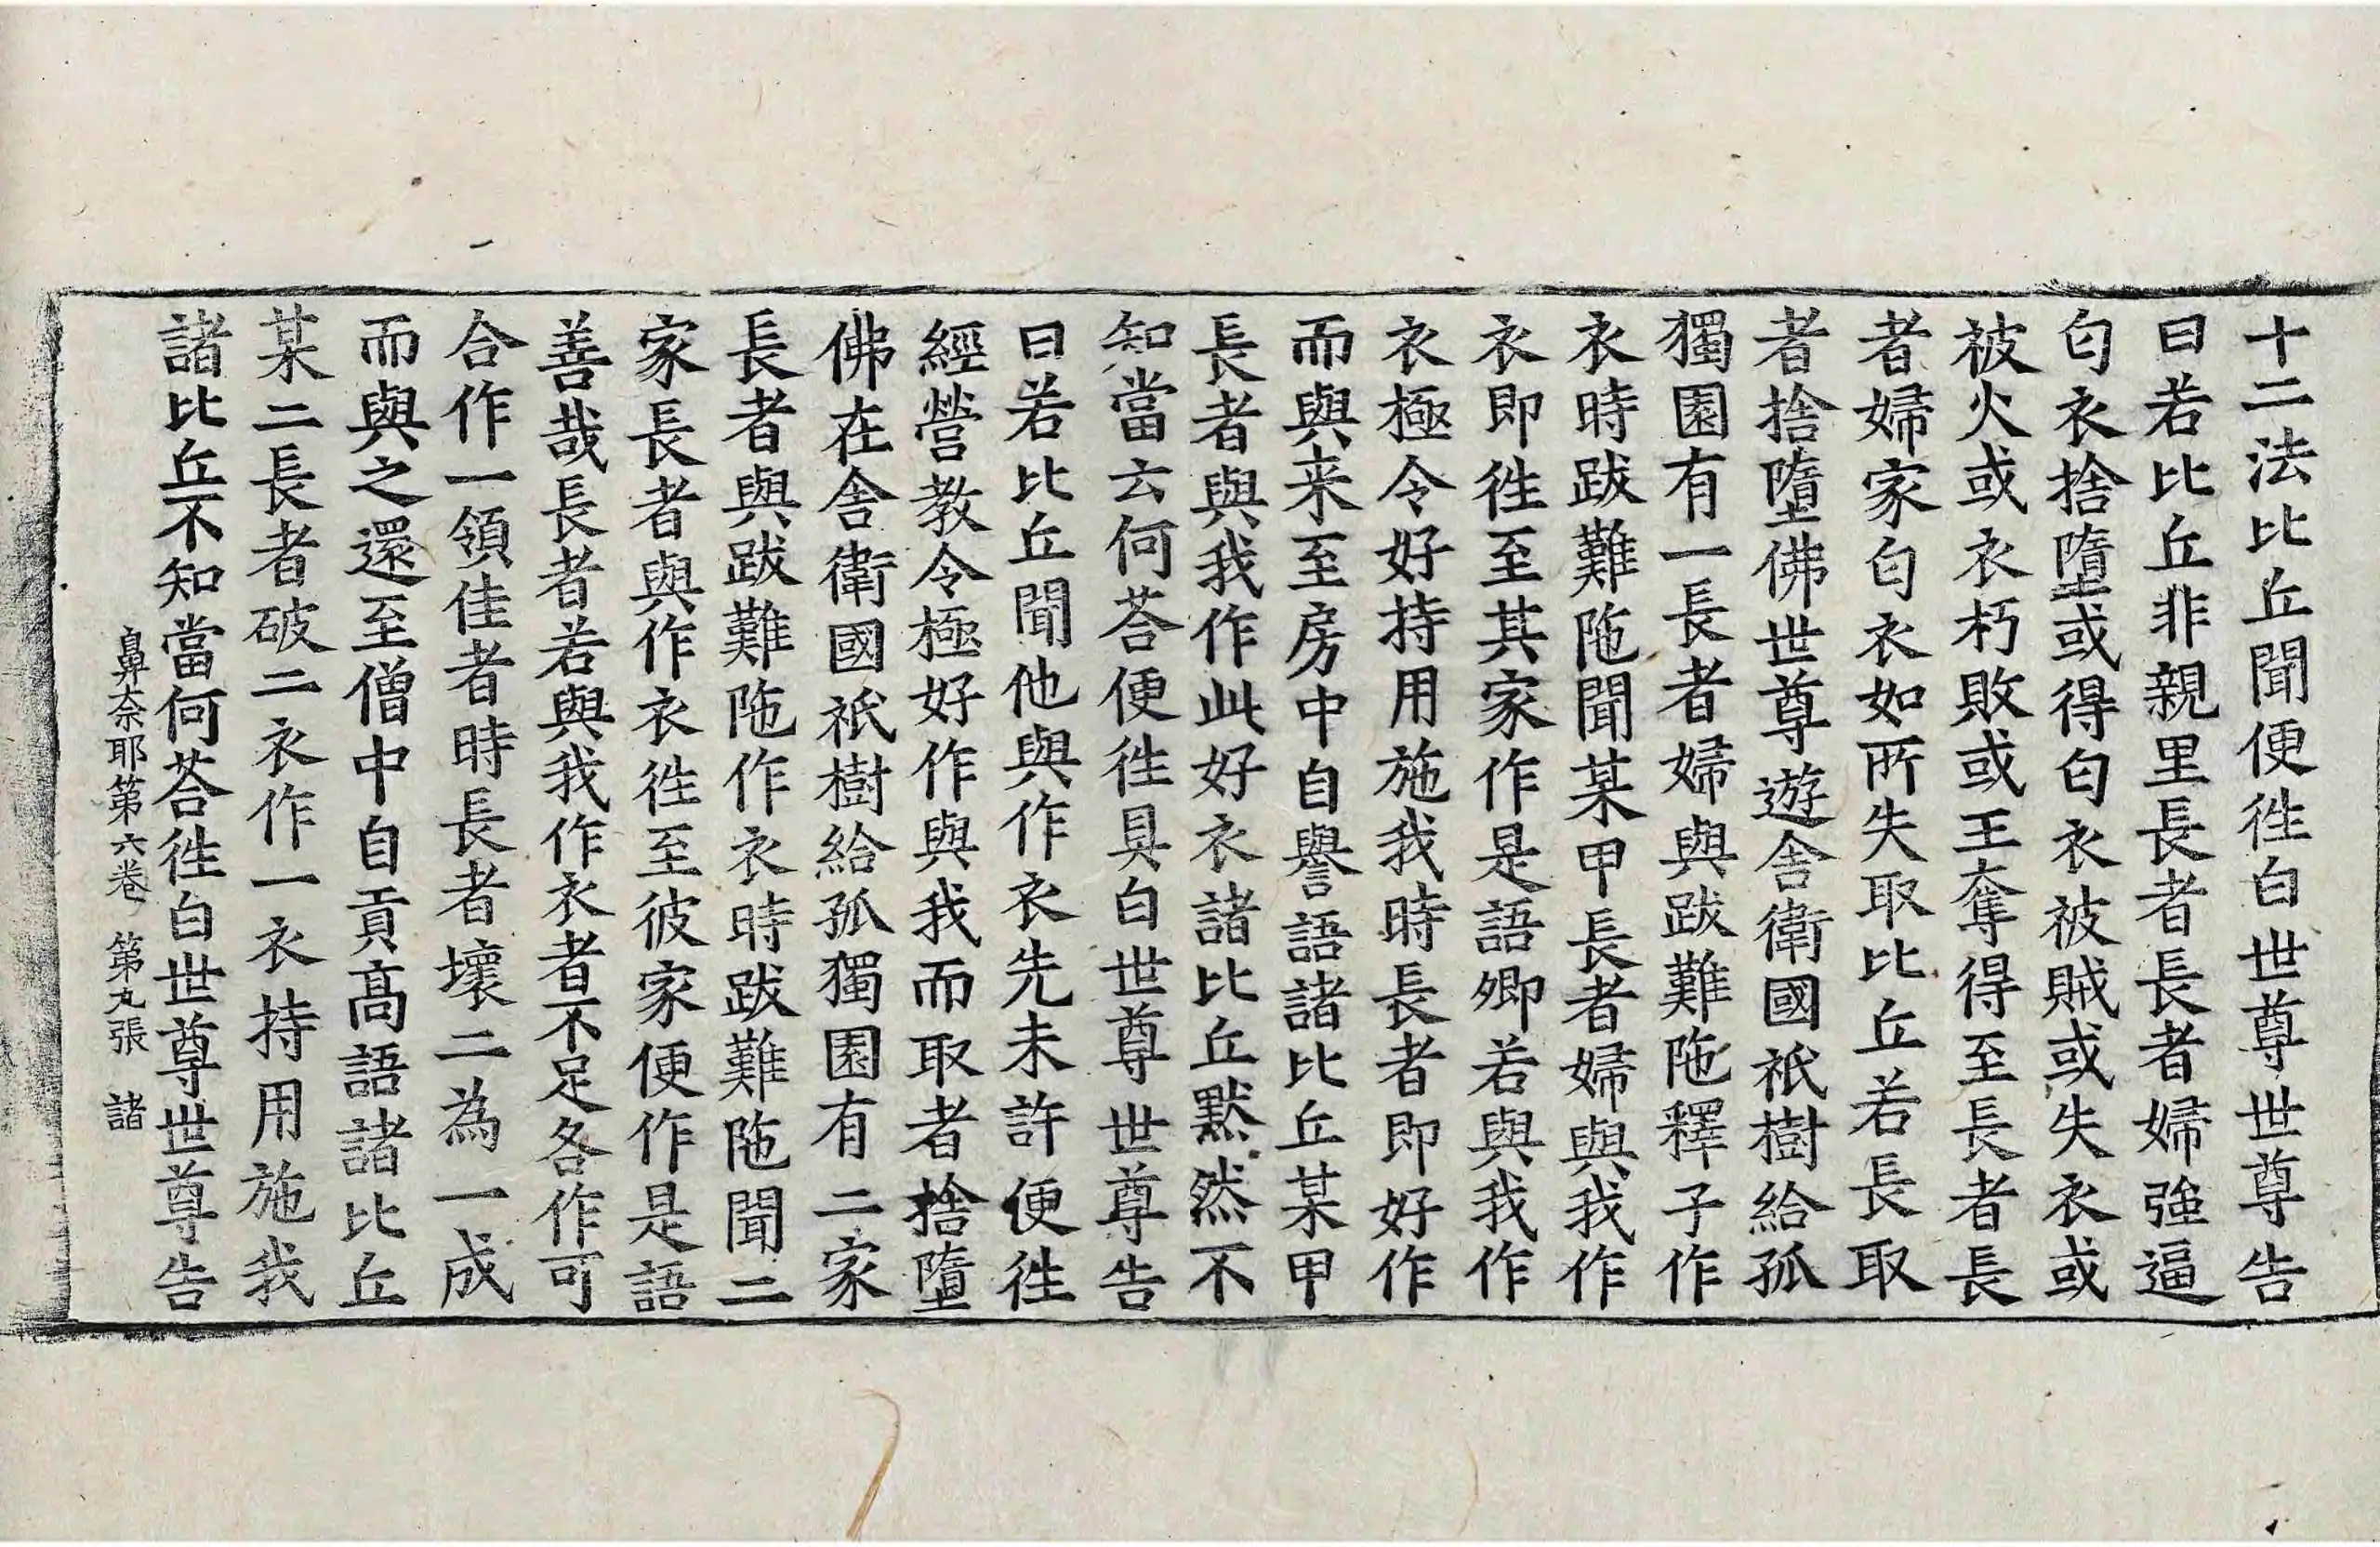 十二法比丘聞便徃白世尊世尊告
曰若比丘非親里長者長者婦強逼
匄衣捨墮或得匄衣被賊或失衣或
被火或衣朽敗或王奪得至長者長
者婦家匄衣如所失取比丘若長取
者捨墮佛世尊遊舎衛國祇樹給孤
獨園有一長者婦與跋難陁釋子作
衣時跋難陁聞某甲長者婦與我作
衣即徃至其家作是語卿若與我作
衣極令好持用施我時長者即好作
而與来至房中自譽語諸比丘某甲
長者與我作此好衣諸比丘默然不
知當云何荅便徃具白世尊世尊告
曰若比丘聞他與作衣先未許便徃
經營教令極好作與我而取者捨墮
佛在舎衛國祇樹給孤獨園有二家
長者與跋難陁作衣時跋難陁聞二
家長者與作衣徃至彼家便作是語
善哉長者若與我作衣者不足各作可
合作一領佳者時長者壞二為一成
而與之還至僧中自貢髙語諸比丘
某二長者破二衣作一衣持用施我
諸比丘不知當何荅徃白世尊世尊告
鼻奈耶第六卷 第九張 諸